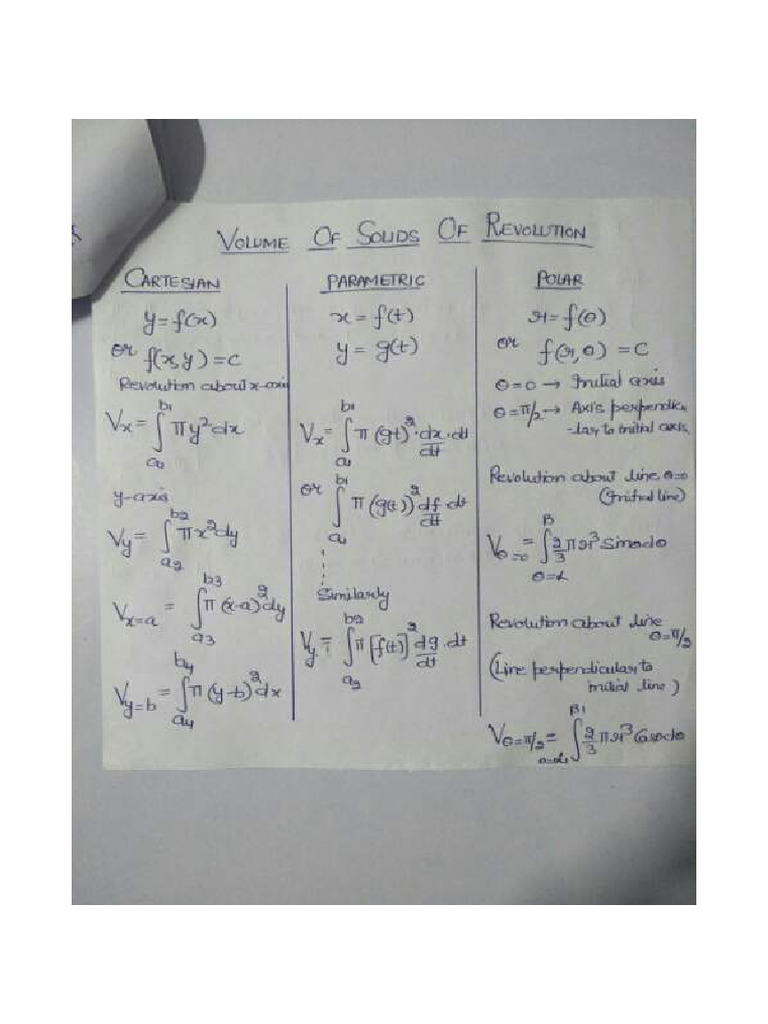 VOLUME OF SOLIDS OF REVOLUTION
CARTESIAN
y = f(x)
or f(x,y) = c
Revolution about x-axis
Vx = ∫_{a1}^{b1} πy² dx
y-axis
Vy = ∫_{a2}^{b2} πx² dy
V_{x=a} = ∫_{a3}^{b3} π(x-a)² dy
V_{y=b} = ∫_{a4}^{b4} π(y-b)² dx
PARAMETRIC
x = f(t)
y = g(t)
Vx = ∫_{a1}^{b1} π(gt)² · dx/dt · dt
or ∫_{a1}^{b1} π(g(t))² df/dt · dt
Similarly
Vy = ∫_{a2}^{b2} π[f(t)]² dg/dt · dt
POLAR
r = f(θ)
or f(r,θ) = c
θ=0 → Initial axis
θ=π/2 → Axis perpendicu
-lar to initial axis
Revolution about line θ=0
(Initial line)
V_{θ=0} = ∫_{θ=α}^{β} 2/3 πr³ sinθdθ
Revolution about line
θ=π/2
(Line perpendicular to
initial line)
V_{θ=π/2} = ∫^{β1} 2/3 πr³ Cosθdθ